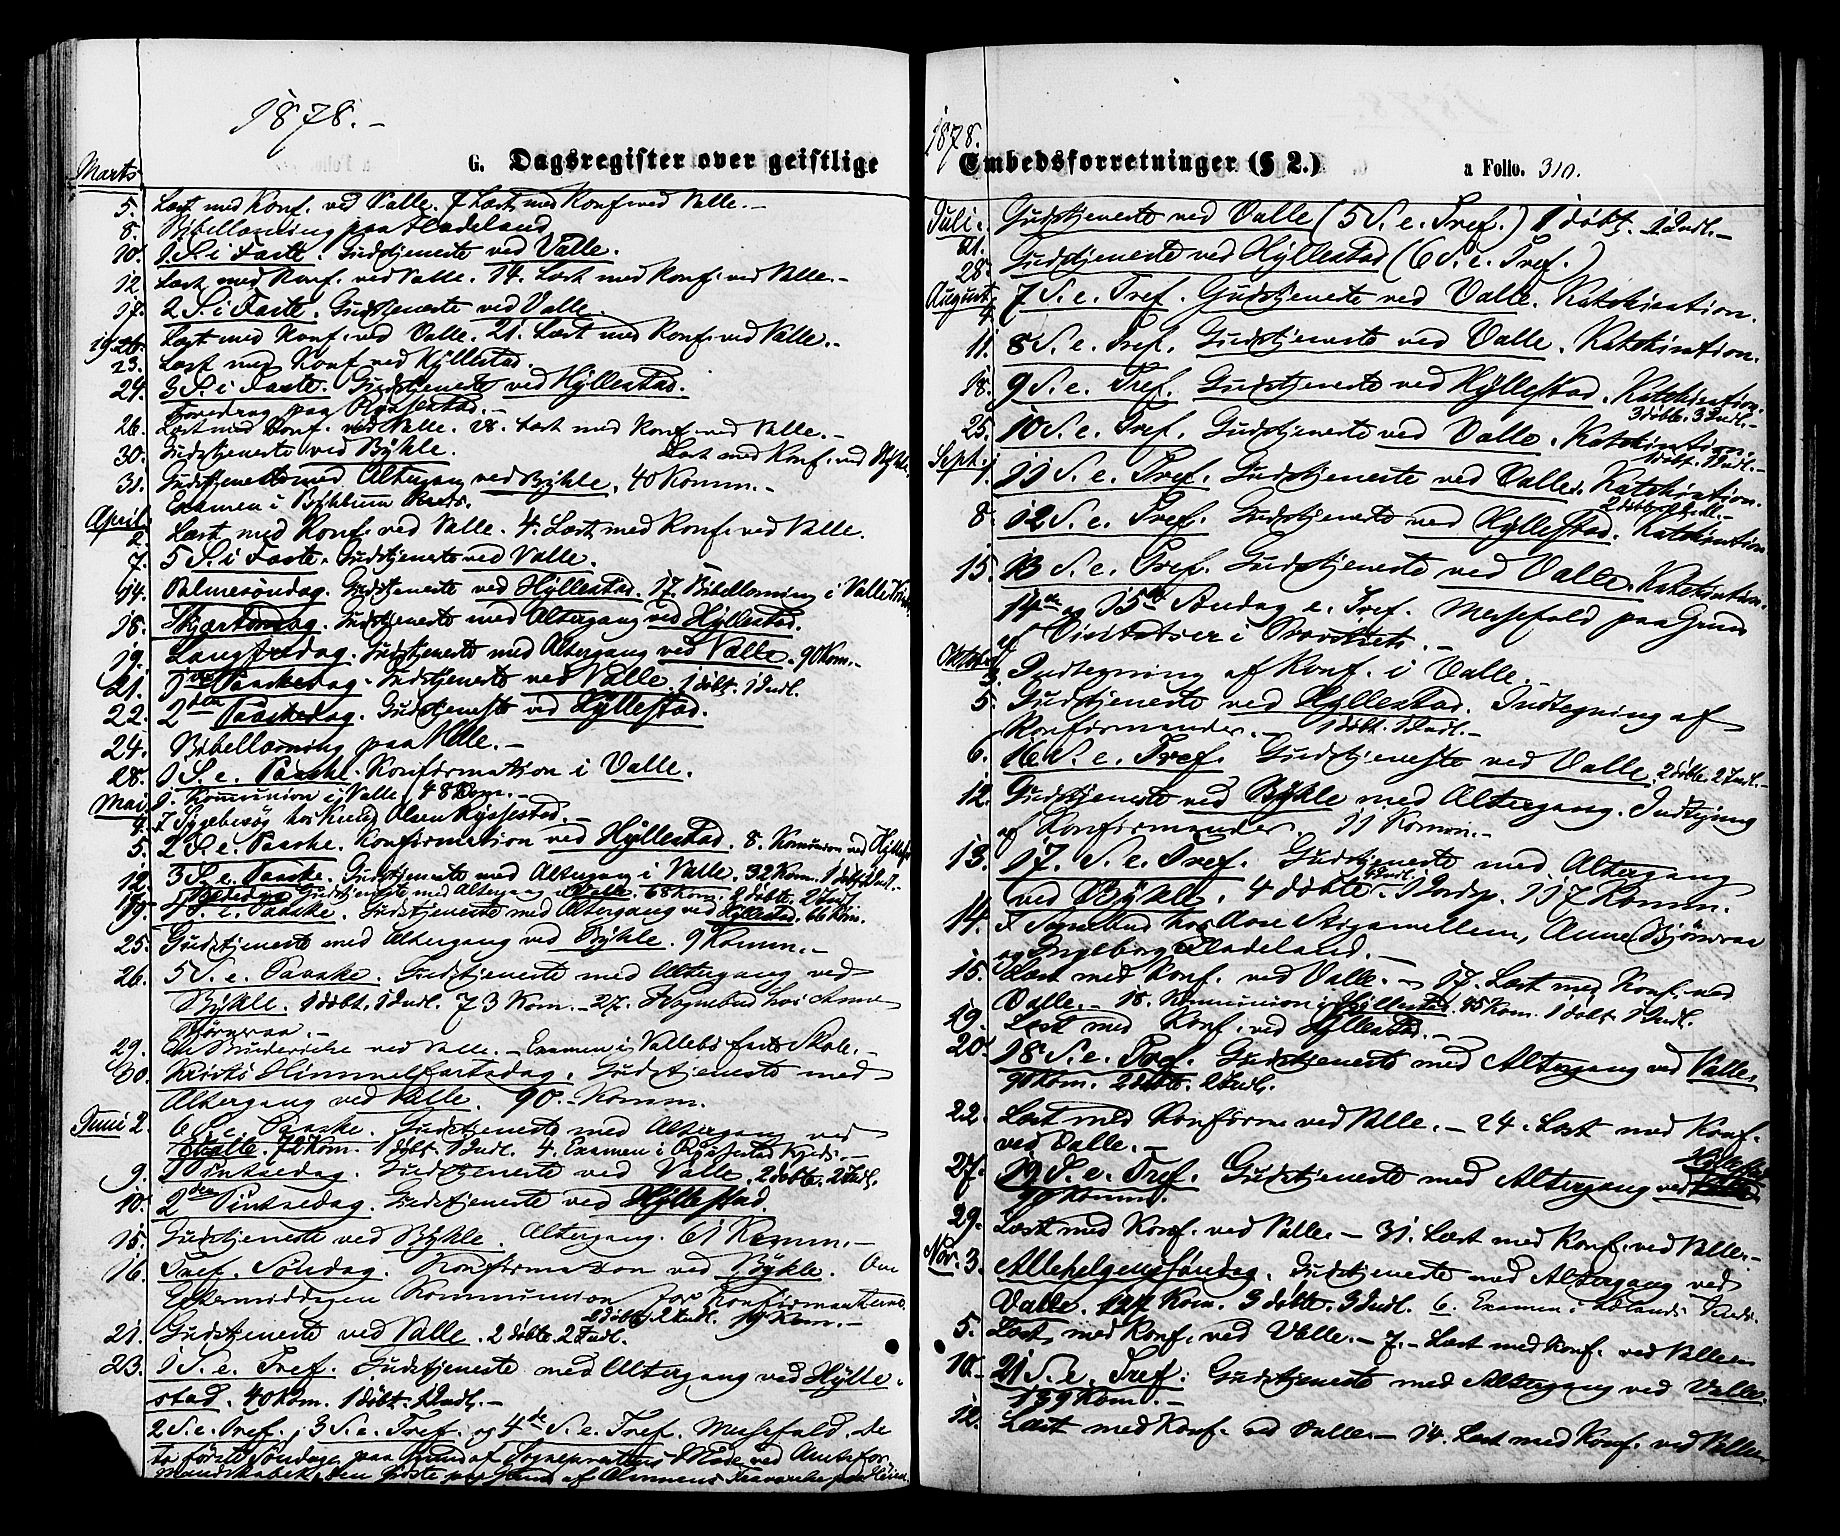 1878.-
G. Dagsregister over geistlige
Marts
5. Læst med Konf. ved Valle. 7 Læst med Konf. ved Valle.-
8. Bibellæsning paa Fladeland
10. 1 S. i Faste. Gudstjeneste ved Valle.
12. Læst med Konf. ved Valle. 14. Læst med Konf. ved Valle.-
17. 2 S. i Faste. Gudstjeneste ved Valle.
19 Læst med Konf. ved Valle. 21. Læst med Konf. ved Valle.-
23. Læst med Konf. ved Hyllestad.
24. 3 S. i Faste. Gudstjeneste ved Hyllestad.
Foredrag paa Rysstad.-
26. Læst med Konf. ved Valle. 28. Læst med Konf. ved Valle.-
30. Gudstjeneste ved Bykle. Læst med Konf. ved Bykle.
31. Gudstjeneste med Altergang ved Bykle. 40 Komm.-
Examen i Kreds.
April
2. Læst med Konf. ved Valle. 4. Læst med Konf. ved Valle.
7. 5 S. i Faste. Gudstjeneste ved Valle.
14. Palmesøndag. Gudstjeneste ved Hyllestad. 17. Bibellæsning i Valle
18. Skjærtorsdag. Gudstjeneste med Altergang ved Hyllestad.
19. Langfredag. Gudstjeneste med Altergang ved Valle. 90 Kom.-
21. 1ste Paaskedag. Gudstjeneste ved Valle. 1 døbt. 1 Indl.
22. 2den Paaskedag. Gudstjeneste ved Hyllestad.
24. Bibellæsning paa Valle.-
28. 1 S. e. Paaske. Konfirmation i Valle.
Mai 1. Kommunion i Valle 48 Kom.-
4. I Sygebesøg hos Knud Olsen Rysstad.-
5. 2 S. e. Paaske. Konfirmation ved Hyllestad. 8. Komunion ved Hyllest
12. 3 S. e. Paaske. Gudstjeneste med Altergang i Valle. 32 Kom. 1 døbt 1 Indl.-
17. Bededag Gudstjeneste med Altergang i Valle. 68 Kom. 2 døbte. 2 Indl.
19. 4 S. e. Paaske. Gudstjeneste med Altergang ved Hyllestad. 66 Kom.
25. Gudstjeneste med Altergang ved Bykle. 9 Komm.-
26. 5 S. e. Paaske. Gudstjeneste med Altergang ved
Bykle. 1 døbt. 1 Indl. 73 Kom.- 27. I Sognebud hos Anne
Bjørnraa.-
29. ved Valle.- Examen i Vallebø faste Skole.-
30. Kristi Himmelfartsdag. Gudstjeneste med
Altergang ved Valle. 90.- Komm.
Juni 2. 6 S. e. Paaske. Gudstjeneste med Altergang ved
Valle. 72 Kom. 1 døbt. 1 Indl. 4. Examen i Rysstad Kreds.-
9. 1 Pintsedag. Gudstjeneste ved Valle. 2 døbte. 2 Indl.
10. 2den Pintsedag. Gudstjeneste ved Hyllestad.
15. Gudstjeneste ved Bykle. Altergang. 61 Komm.-
16. Tref. Søndag. Konfirmation ved Bykle. Om
Eftermiddagen Kommunion for Konfirmanterne.
2 døbte. 2 Indl. 19 Kom.-
21. Gudstjeneste ved Valle. 2 døbte. 2 Indl.
23. 1 S. e. Tref. Gudstjeneste med Altergang ved Hylle-
stad. 40 Kom. 1 døbt. 1 Indl.-
2 S. e. Tref., 3 S. e. Tref. og 4de S. e. Tref. Messefald. De
to første Søndage paa Grund af Sognepræstens Møde ved Amtsfor-
mandskabet, den sidste paa Grund af Almuens Fraværelse paa Heien.
1878.
Embedsforretninger (§ 2.)
a Folio. 310.
Juli.
21. Gudstjeneste ved Valle (5 S. e. Tref.) 1 døbt. 1 Indl.-
28. Gudstjeneste ved Hyllestad (6 S. e. Tref.)
August
4. 7 S. e. Tref. Gudstjeneste ved Valle. Katekisation.
11. 8 S. e. Tref. Gudstjeneste ved Valle. Katekisation.
18. 9 S. e. Tref. Gudstjeneste ved Hyllestad. Katekisation.
3 døbte. 3 Indl.-
25. 10 S. e. Tref. Gudstjeneste ved Valle. Katekisation.
1 døbt. 1 Indl.-
Sept. 1. 11 S. e. Tref. Gudstjeneste ved Valle. Katekisation.
2 døbte 2 Indl.-
8 12 S. e. Tref. Gudstjeneste ved Hyllestad. Katekisation
15. 13 S. e. Tref. Gudstjeneste ved Valle. Katekisation.
14de og 15de Søndag e. Tref. Messefald paa Grund
af Visitatser i Provstiet.-
Oktober
3. Indtegning af Konf. i Valle.-
5. Gudstjeneste ved Hyllestad. Indtegning af
Konfirmander.- 1 døbt. 1 Indl.-
6. 16 S. e. Tref. Gudstjeneste ved Valle. 2 døbte. 2 Indl.-
12. Gudstjeneste ved Bykle med Altergang. Indtegning
af Konfirmander. 11 Komm.-
13. 17. S. e. Tref. Gudstjeneste med Altergang
ved Bykle. 4 døbte. 4 Indl. 1 Indp. 117 Komm.
14. I Sognebud hos Aase Stigamellem, Anne Bjørnraa
og Ingeborg Fladeland.-
15. Læst med Konf. ved Valle.- 17. Læst med Konf. ved
Valle.- 18. Kommunion i Hyllestad. 45 Kom. 1 døbt 1 Indl.
19. Læst med Konf. ved Hyllestad.-
20. 18 S. e. Tref. Gudstjeneste med Altergang ved Valle.
90 Kom. 2 døbte. 2 Indl.
22. Læst med Konfirm ved Valle.- 24. Læst med Konf.
ved Valle.-
27. 19 S. e. Tref. Gudstjeneste med Altergang ved Hyllestad
Komm.
29. Læst med Konf. ved Valle.- 31. Læst med Konf. ved Valle.-
Nov. 3. Allehelgenssøndag. Gudstjeneste med Altergang ved
Valle. 127 Kom. 3 døbte. 3 Indl. 6. Examen i Kreds.
5. Læst med Konf. ved Valle.- 7.- Læst med Konf. ved Valle.-
10. 21 S. e. Tref. Gudstjeneste med Altergang ved Valle.
139 Kom.-
12. Læst med Konf. ved Valle.- 14. Læst med Konf. ved Valle.-